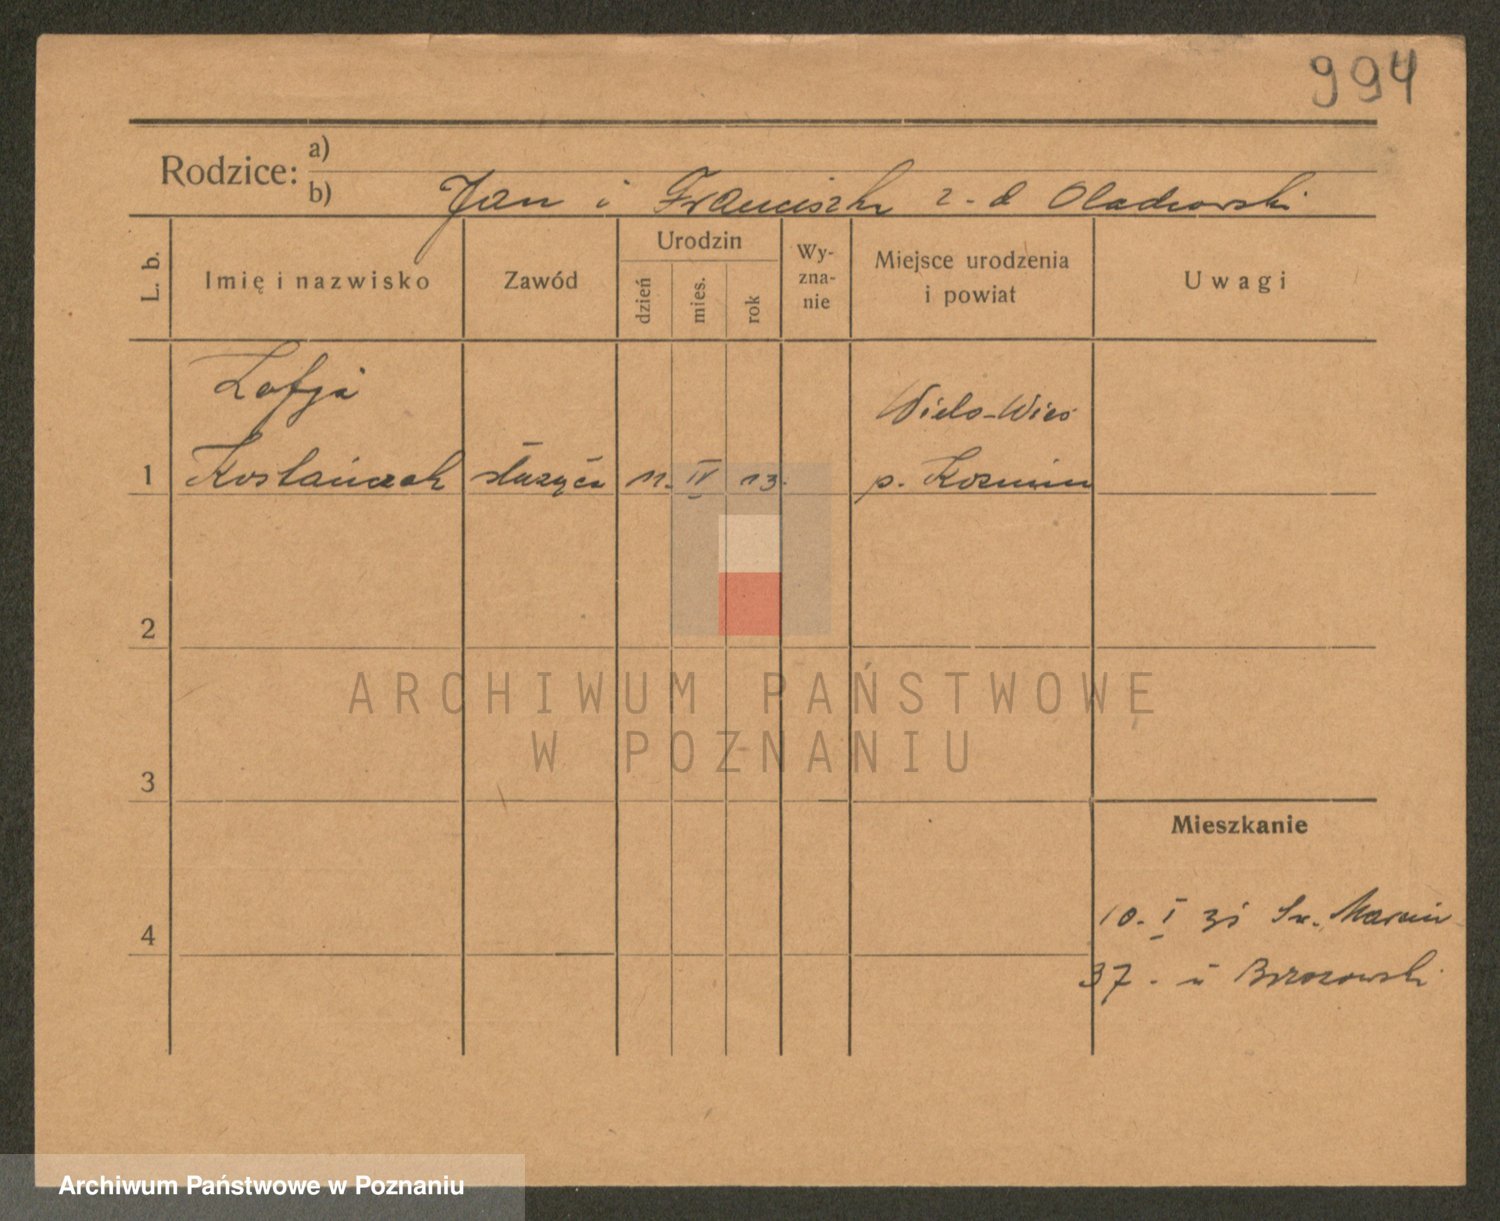 994
Rodzice:
a)
b) Jan i Franciszka z-d
L. b.
Imię i nazwisko
Zawód
Urodzin
dzień
mies.
rok
Wy-
zna-
nie
Miejsce urodzenia
i powiat
Uwagi
Zofja
Wielo-Wieś
1 Kostańczak służąca 11. IV 13. p. Kozmin
2
ARCHIWUM PAŃSTWOWE
W POZNANIU
3
Mieszkanie
4
10. I Św. Marcin
37. u Brzozowski
Archiwum Państwowe w Poznaniu